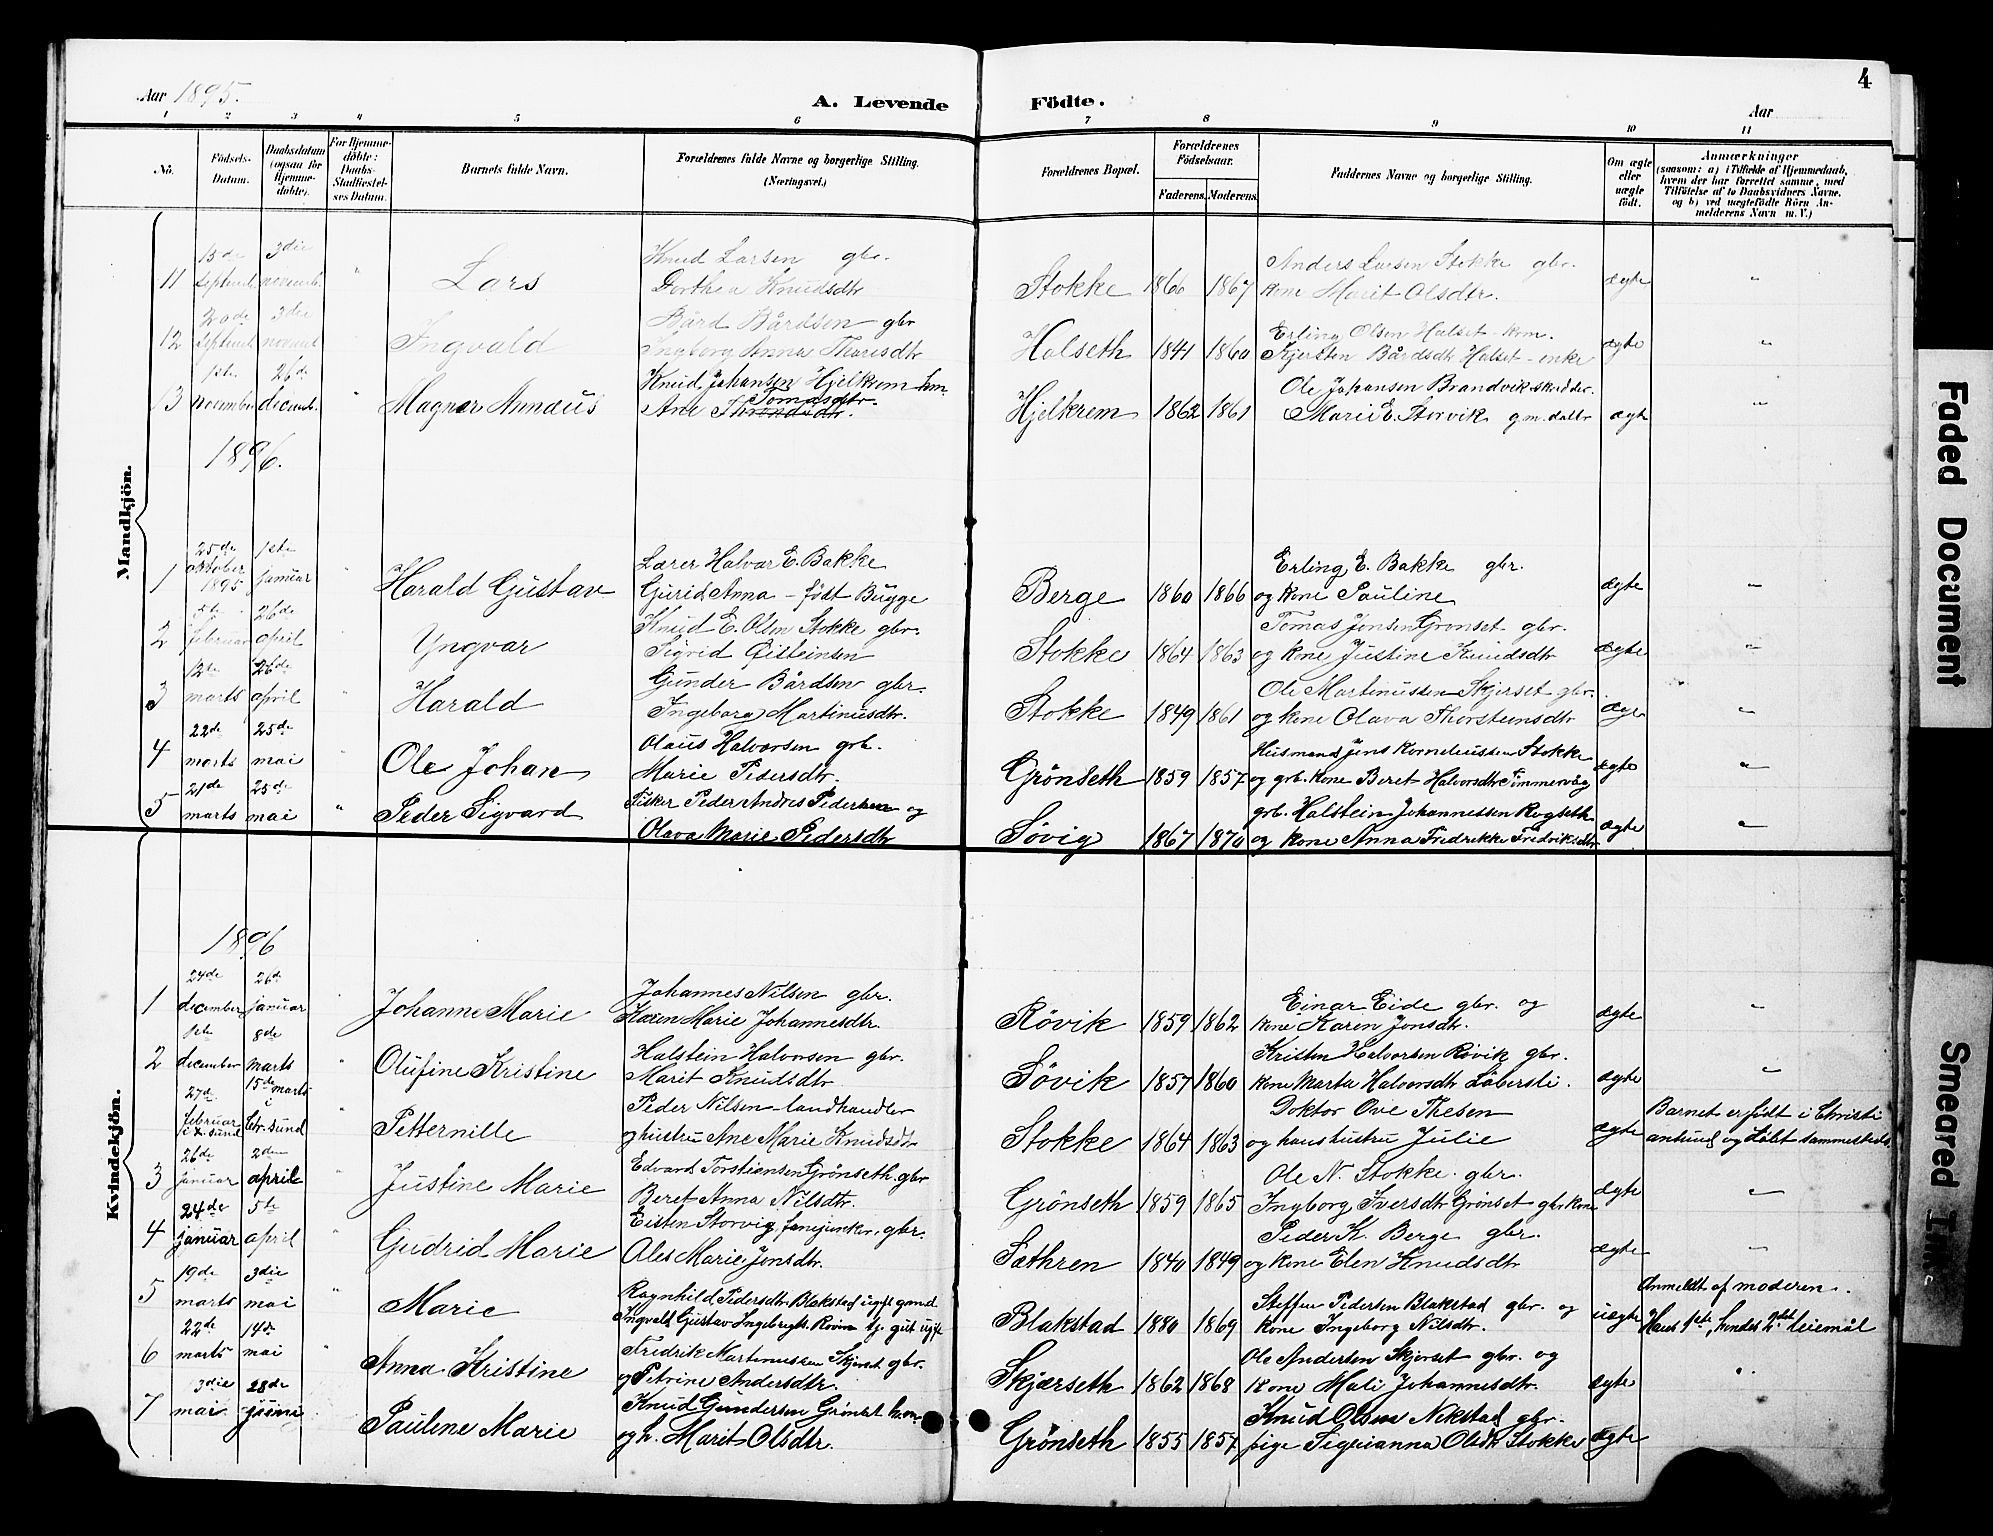 4
Aar 1895.
A. Levende Födte.
Aar
1 2 3 4 5 6 7 8 9 10 11
No.
Födsels-Datum.
Daabsdatum (ogsaa for Hjemmedöbte).
For Hjemmedöbte: Daabs-Stadfæstelses Datum.
Barnets fulde Navn.
Forældrenes fulde Navne og borgerlige Stilling. (Næringsvei.)
Forældrenes Bopæl.
Forældrenes Födselsaar.
Faderens. Moderens.
Faddernes Navne og borgerlige Stilling.
Om ægte eller uægte födt.
Anmærkninger
(saasom: a) i Tilfælde af Hjemmedaab, hvem der har forrettet samme, med Tilföielse af to Daabsvidners Navne. og b) ved uægtefödte Börn Anmelderens Navn m. V.)
Mandkjön.
11 13de septemb. 3die novemb. " Lars Knud Larsen gbr. Dorthea Knudsdtr Stokke 1866 1867 Anders Larsen Stokke gbr. kone Marit Olsdtr. ægte "
12 20de septemb. 3die novemb " Ingvald Bård Bårdsen gbr Ingborg Anna Halseth 1841 1860 Erling Olsen Halset kom. Kjersten Bårdsdtr Halset - enke ægte "
13 1ste november 26de decemb. " Magnar Annæus Knud Johansen Hjelkrem hm Ane Tomasdtr. Hjelkrem 1862 1861 Ole Johansen Brandvik skrædder Marie E. Storvik g.m. datter ægte "
1896.
1 25de oktober 1895 1ste januar " Harald Gustav Lærer Halvar E. Bakke Gurid Anna - født Bugge Berge 1860 1866 Erling E. Bakke gbr. og kone Pauline ægte "
2 5te februar 26de april " Yngvar Knud E. Olsen Stokke gbr. Sigrid Øisteinsen Stokke 1864 1863 Tomas Jonsen Grønset gbr. og kone Justine Knudsdtr ægte "
3 12te marts 26de april " Harald Gunder Bårdsen gbr. Ingeborg Martinusdtr. Stokke 1849 1861 Ole Martinussen Skjerset gbr. og kone Olava Thorsteinsdtr ægte "
4 22de marts 25de mai " Ole Johan Olaus Halvorsen grb. Marie Pedersdtr. Grönseth 1859 1857 Husmand Jens Korneliussen Stokke og grb. kone Beret Halvorsdtr Simmervåg ægte "
5 21de marts 25de mai " Peder Sigvard Fisker Peder Andres Pedersen og Olava Marie Pedersdtr Søvig 1867 1870 grb. Halstein Johannessen Rogseth og kone Anna Fredrikke Fredriksdtr ægte "
Kvindekjön.
1896
1 24de december 26de januar " Johanne Marie Johannes Nilsen gbr. Karen Marie Johannesdtr. Røvik 1859 1862 Einar Eide gbr. og kone Karen Jonsdtr. ægte "
2 1ste december 8de marts " Olufine Kristine Halstein Halvorsen gbr. Marit Knudsdtr Søvik 1857 1860 Kristen Halvorsen Røvik gbr. kone Marta Halvorsdtr Løbersli. ægte "
27de februar i K.sund 15de marts i Chr.sund " Petternille Peder Nilsen - landhandler og hustru Ane Marie Knudsdtr Stokke 1864 1863 Doktor Ove Thesen og hans hustru Julie ægte Barnet er født i Christiansund og døbt sammesteds
3 26de januar 2den april Justine Marie Edvard Torstiansen Grönseth gbr Beret Anna Nilsdtr. Grönseth 1859 1865 Ole N. Stokke. gbr. Ingborg Iversdtr Grönset gbr kone ægte "
4 24de januar 5te april " Gudrid Marie Eisten Storvig fanejunker, gbr. Ales Marie Jonsdtr. Sæthren 1840 1849 Peder K. Berge gbr. og kone Elen Knudsdtr ægte "
5 19de marts 3die mai " Marie Ragnhild Pedersdtr Blakstad ugift gaard. Ingvald Gustav Ingebrigts. gut ugift Blakstad 1880 1869 Steffen Pedersen Blakstad gbr. og kone Ingeborg Nilsdtr. uægte Anmeldt af moderen. Hans 1ste, hendes 2det leiemål
6 22de marts 14de mai " Anna Kristine Fredrik Martinussen Skjerset gbr. og Petrine Andersdtr. Skjærseth 1862 1868 Ole Andersen Skjerset gbr. og kone Mali Johannesdtr. ægte "
7 3die mai 28de juni Pauline Marie Knud Gundersen Grönset hm og h. Marit Olsdtr. Grönseth 1855 1857 Knud Olsen Nekstad gbr. pige Sigrianna Olsdtr Stokke ægte
Faded Document
Smeared Ink.